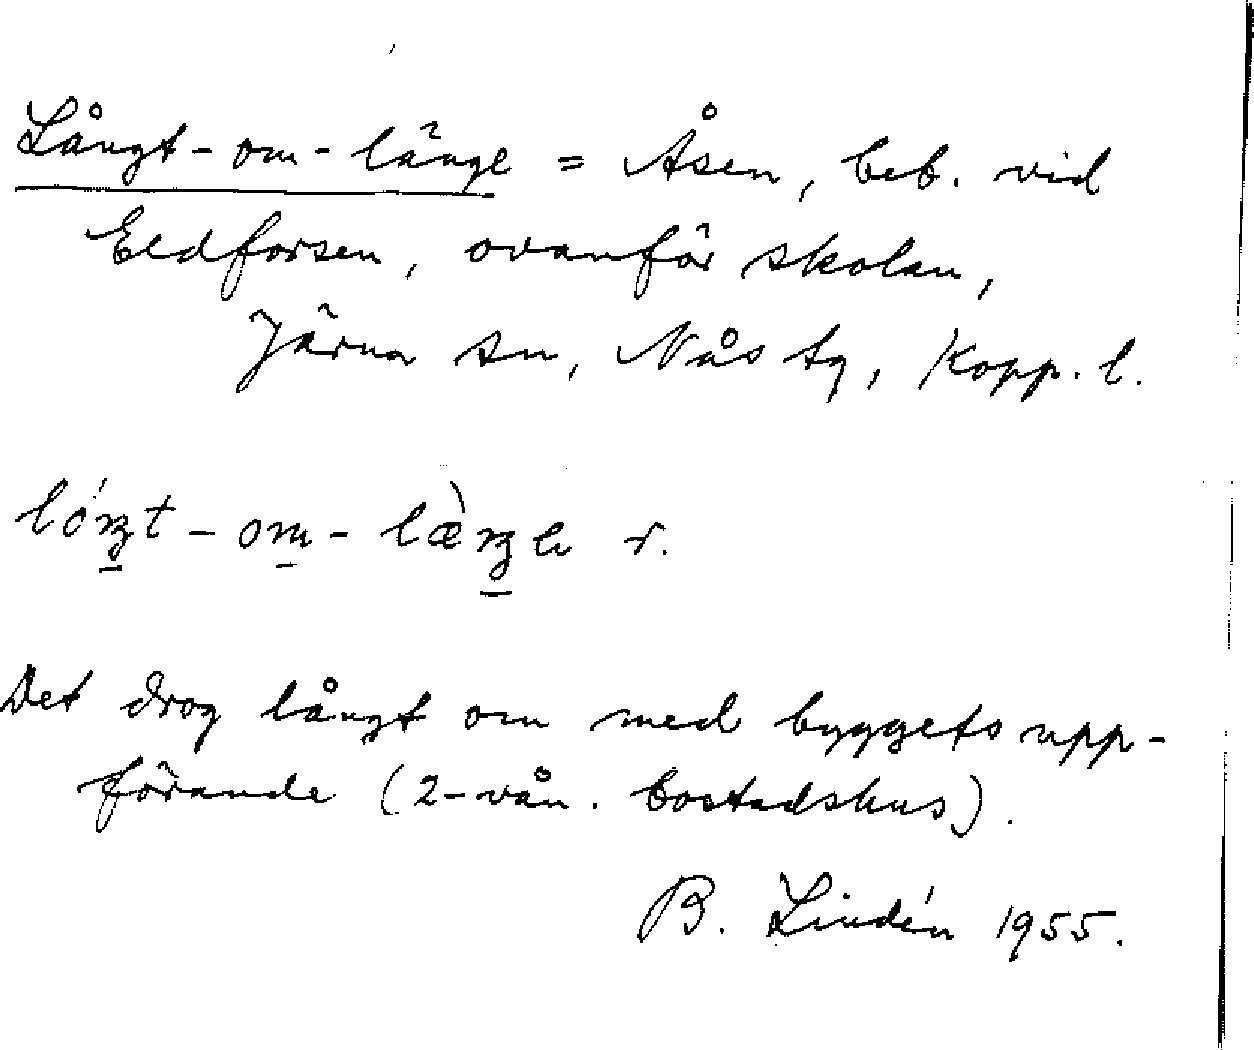 Långt-om-länge = Åsen, beb. vid
Eldforsen, ovanför skolan,
Järna sn, Nås tg, Kopp. l.
-om-
Det drog långt om med byggets upp-
förande (2-vån. bostadshus).
B. Lindén 1955.